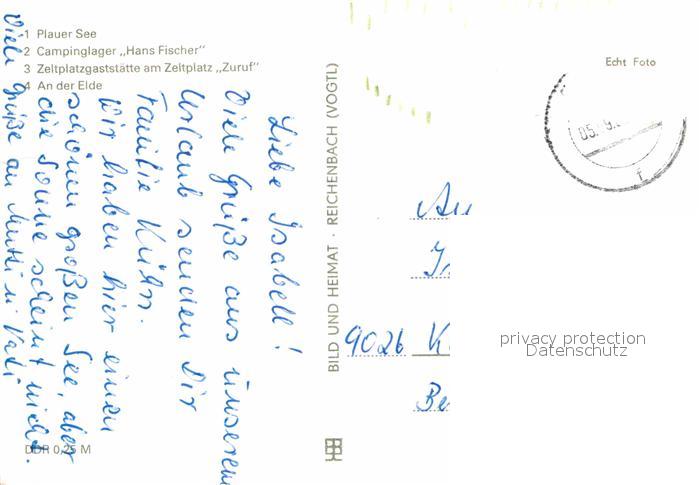 1 Plauer See
2 Campinglager „Hans Fischer"
3 Zeltplatzgaststätte am Zeltplatz „Zuruf"
4 An der Elde
Liebe Isabell!
Viele Grüße aus unserem
Urlaub senden Dir
Familie Kühn.
Wir haben hier einen
schönen großen See, aber
die Sonne scheint nicht.
Viele Grüße an Mutti u. Vati.
DDR 0,25 M
BILD UND HEIMAT · REICHENBACH (VOGTL)
Echt Foto
05. 9.
f
An
9026 K
Be
privacy protection
Datenschutz